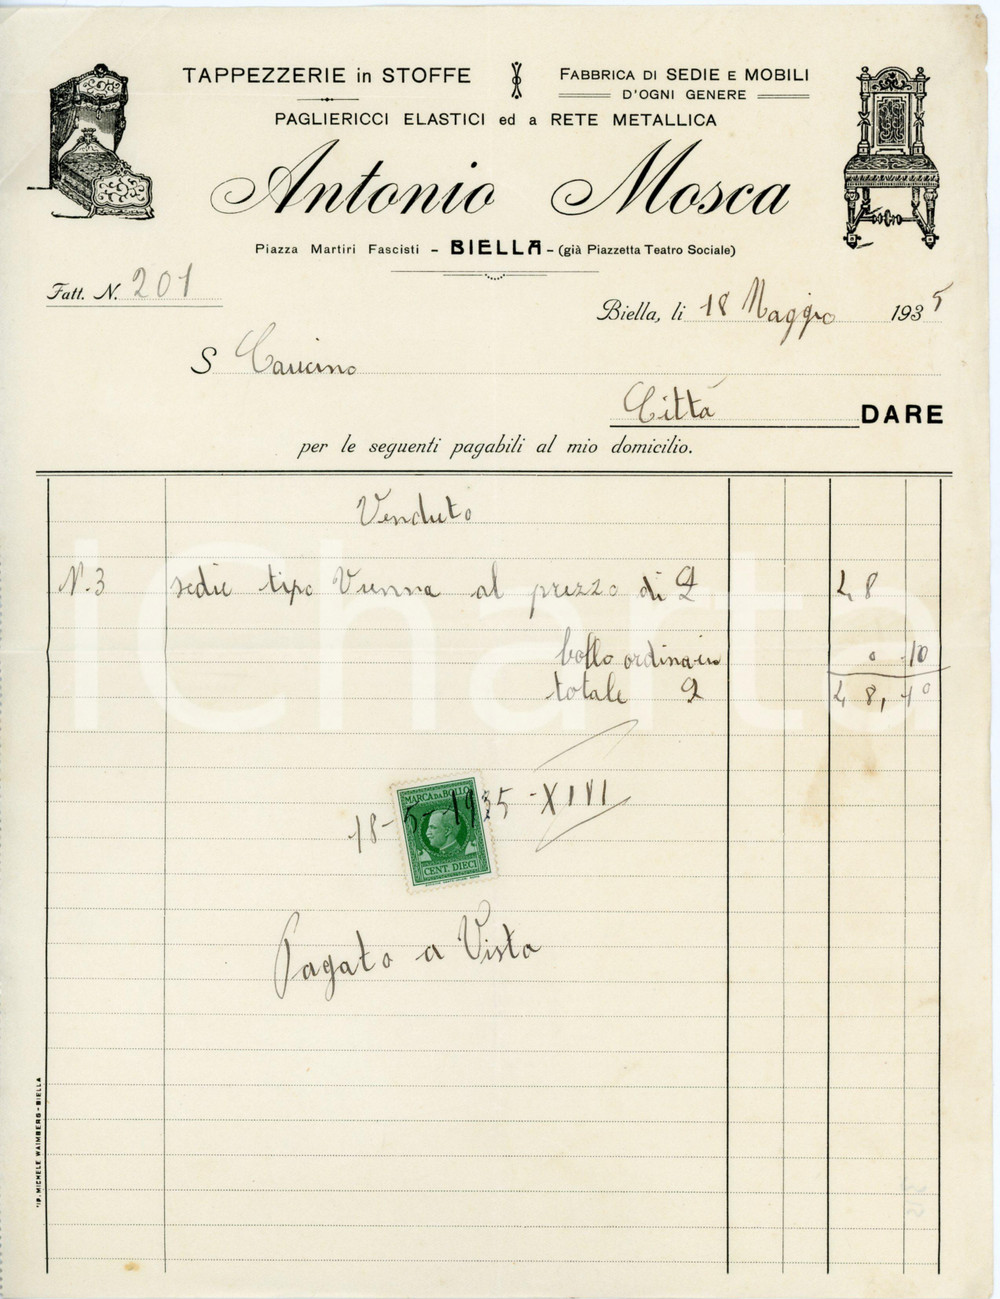 TAPPEZZERIE in STOFFE
FABBRICA DI SEDIE E MOBILI
D'OGNI GENERE
PAGLIERICCI ELASTICI ed a RETE METALLICA
Antonio Mosca
Piazza Martiri Fascisti - BIELLA - (già Piazzetta Teatro Sociale)
Fatt. N. 201
Biella, li 18 Maggio 1935
S Caucino
Città DARE
per le seguenti pagabili al mio domicilio.
Venduto
N. 3 sedie tipo Vienna al prezzo di £ 48
bollo ordinario 0 10
totale £ 48,10
MARCA DA BOLLO
18-5-1935-XIVI
CENT. DIECI
Pagato a Vista
TIP. MICHELE WAIMBERG - BIELLA
ICharta